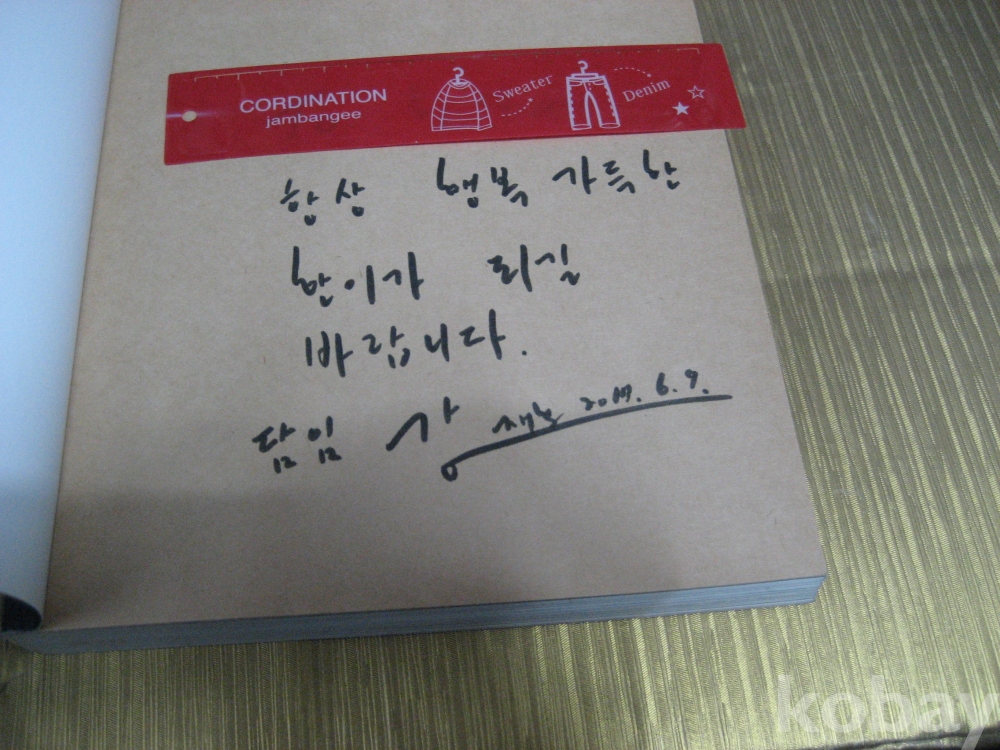 CORDINATION
jambangee
Sweater
Denim
항상 행복 가득한
한이가 되길
바랍니다.
담임 강 2017. 6. 9.
kobay